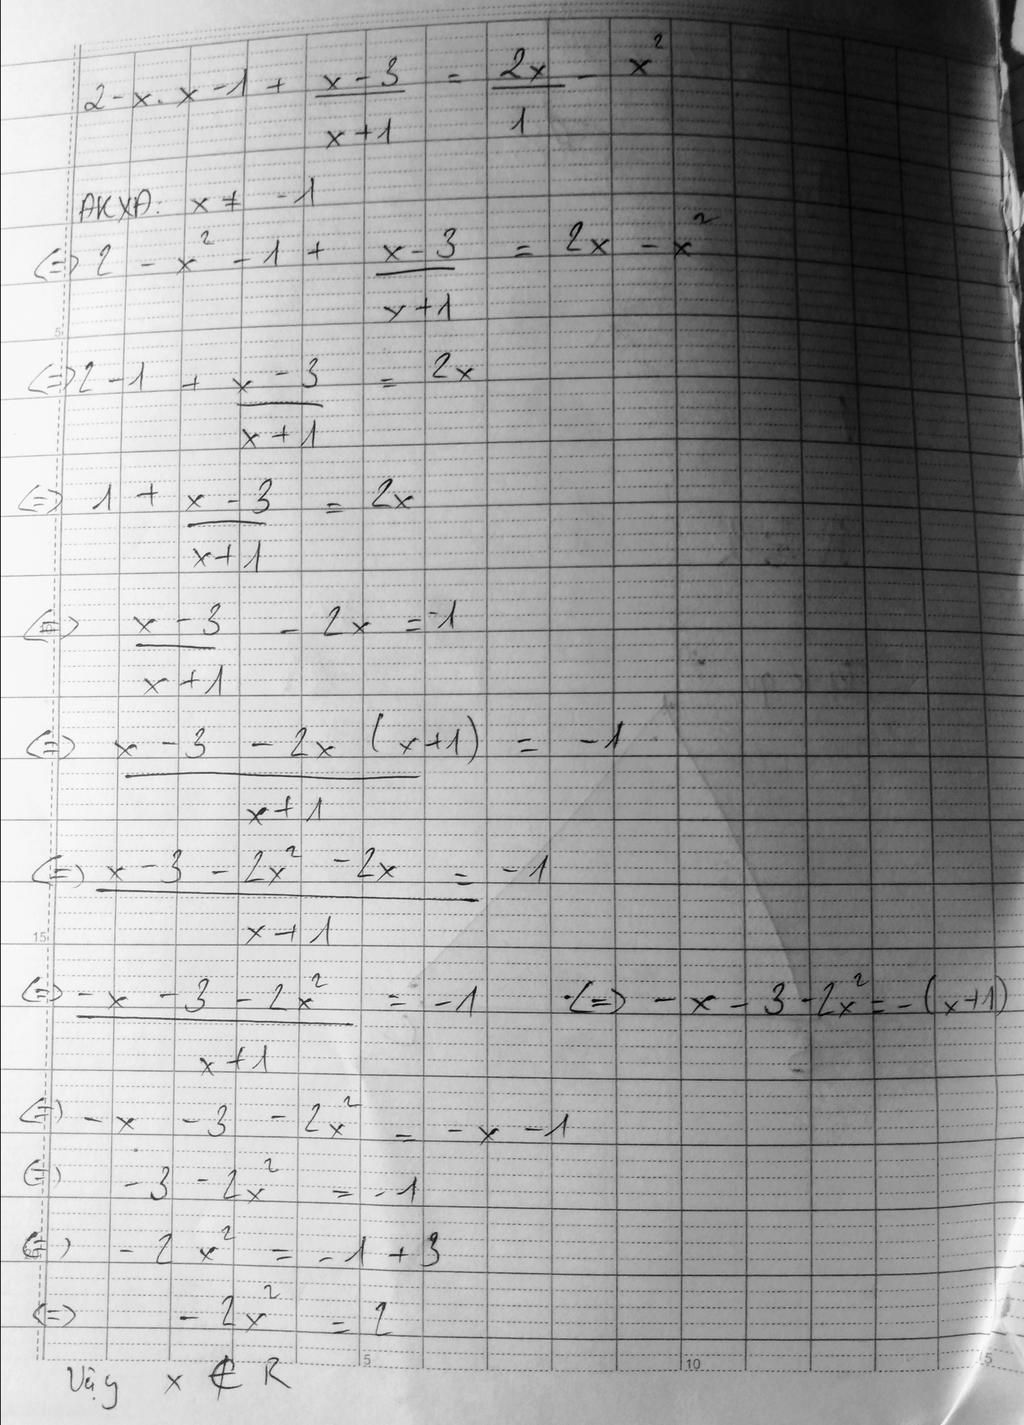 2 - x . x - 1 + (x - 3)/(x + 1) = 2x/1 - x²
ĐKXĐ: x ≠ -1
(=) 2 - x² - 1 + (x - 3)/(x + 1) = 2x - x²
(=) 2 - 1 + (x - 3)/(x + 1) = 2x
(=) 1 + (x - 3)/(x + 1) = 2x
(=) (x - 3)/(x + 1) - 2x = -1
(=) (x - 3 - 2x (x + 1))/(x + 1) = -1
(=) (x - 3 - 2x² - 2x)/(x + 1) = -1
(=) (-x - 3 - 2x²)/(x + 1) = -1 (=) -x - 3 - 2x² = -(x + 1)
(=) -x - 3 - 2x² = -x - 1
(=) -3 - 2x² = -1
(=) -2x² = -1 + 3
(=) -2x² = 2
Vậy x ∉ R
5
15
5
10